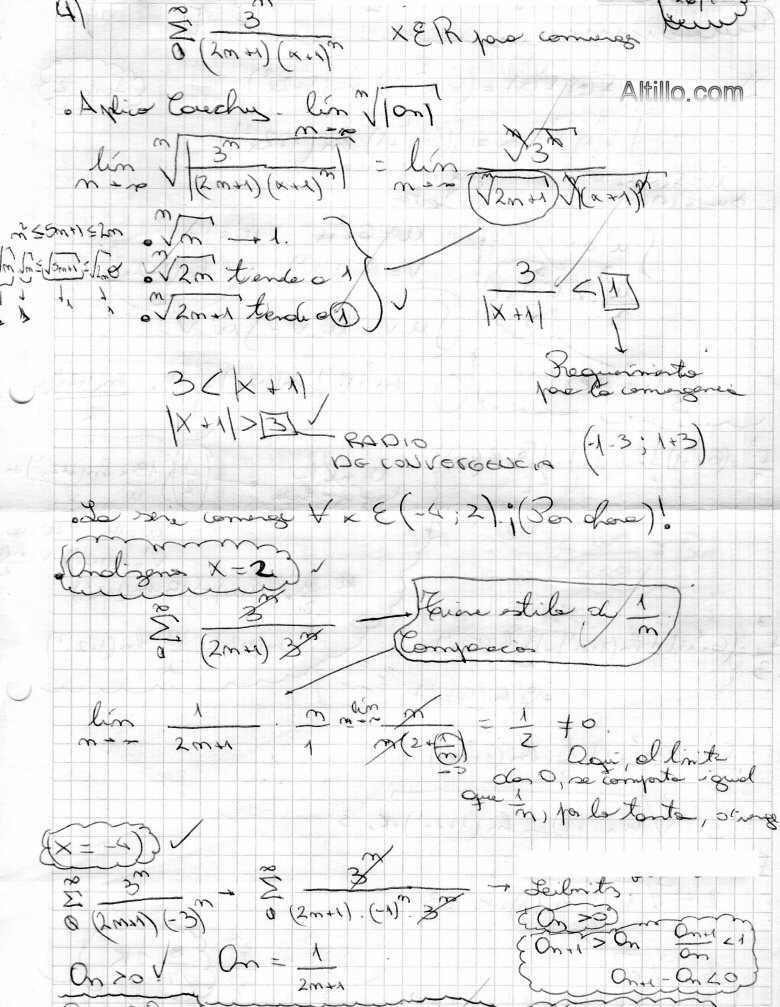 4) ∞ Σ 0 3^n / (2n+1) (x+1)^n x ∈ R para
Altillo.com
. Aplico Cauchy. lím n→∞ ⁿ√|an|
lím n→∞ ⁿ√|3^n / (2n+1) (x+1)^n| = lím n→∞ ⁿ√3^n / ⁿ√2n+1 ⁿ√|(x+1)^n|
. ⁿ√n → 1.
. ⁿ√2n tende a 1
. ⁿ√2n+1 tende a 1
3 / |x+1| < 1
Requerimiento
para la convergencia
3 < |x+1|
|x+1| > 3
RADIO
DE CONVERGENCIA (-1-3 ; 1+3)
. La serie converge ∀ x ∈ (-4 ; 2). ¡(Por ahora)!
. Analizamos x = 2
∞ Σ 0 3^n / (2n+1) 3^n → Tiene estilo de 1/n
Comparación
lím n→∞ 1 / 2n+1 . n / 1 lím n→∞ n / n(2+1/n) →0 = 1/2 ≠ 0.
Aquí, el límite
dos 0, se comporta igual
que 1/n, por lo tanto,
x = -4
∞ Σ 0 3^n / (2n+1) (-3)^n → ∞ Σ 0 3^n / (2n+1) . (-1)^n . 3^n → Leibnitz.
an > 0
an+1 > an an+1 / an < 1
an+1 - an < 0
an > 0 an = 1 / 2n+1